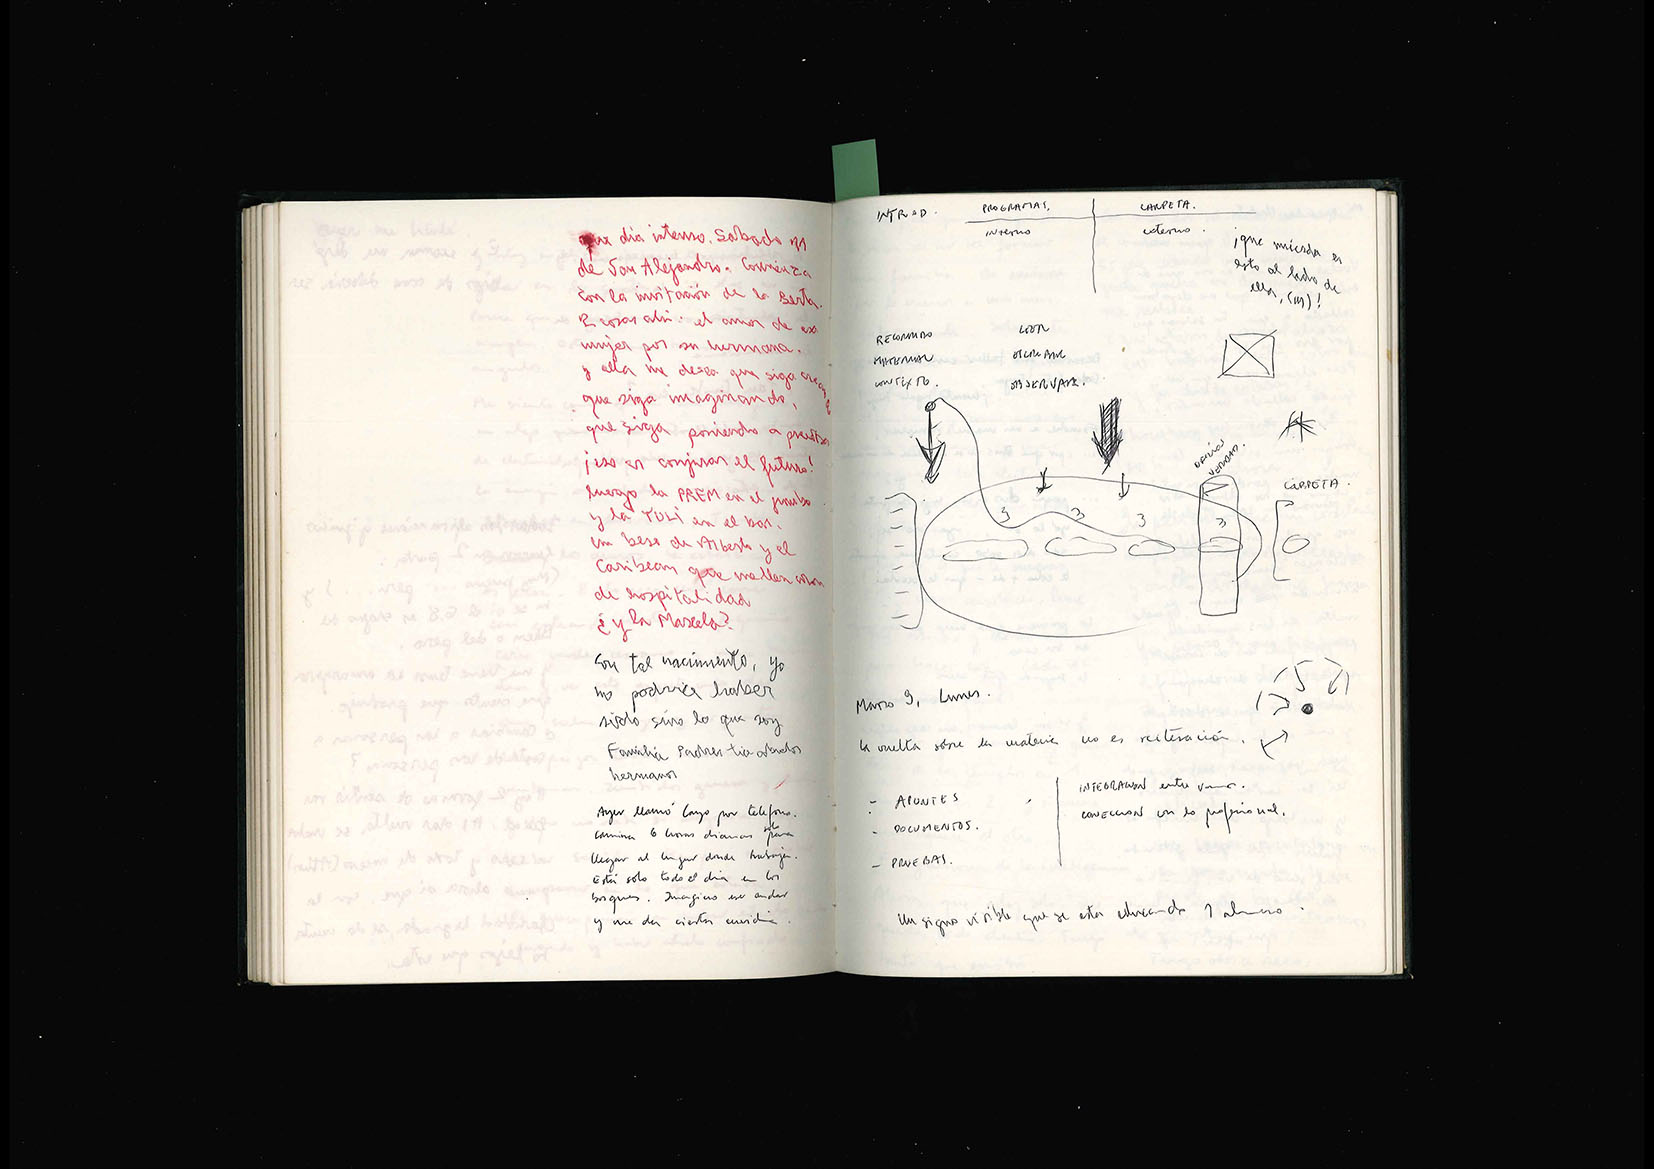 día intenso. Sabado
de San Alejandro. Comienza
con la invitación de la Berta.
2 cosas ahí: el amor de esa
mujer por su hermana.
y ella me desea que siga
que siga imaginando,
que siga poniendo a prueba
¡eso es conjurar el futuro!
luego la PREM en el pueblo
y la TULI en el bar.
un beso de Alberto y el
Caribean que
de hospitalidad
¿y la Marcela?
Con tal nacimiento, yo
no podría haber
sido sino lo que soy
Familia Padres tia abuelos
hermanos
Ayer llamó por telefono.
camina 6 horas diarias solo para
llegar al lugar donde trabaja.
Está solo todo el día en los
bosques. Imagino ese andar
y me da cierta envidia.
INTROD. PROGRAMAS. CARPETA.
interno externo.
¡que mierda es
esto al lado de
ella, (M)!
RECORRIDO
MATERIAL
CONTEXTO.
LEER
DIBUJAR
OBSERVAR.
VERDAD.
CARPETA.
3 3 3 3
Marzo 9, Lunes.
la vuelta sobre la materia no es reiteración.
- APUNTES
- DOCUMENTOS.
- PRUEBAS.
INTEGRACION entre
CONECCION con lo profesional.
Un signo visible que se esta educando 1 alumno.